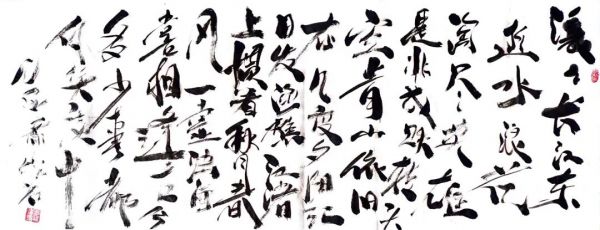 滚々长江东
逝水浪花
淘尽英雄
是非成败转头
空青山依旧
在几度夕阳红
白发渔樵江渚
上惯看秋月春
风一壶浊酒
喜相逢古今
多少事都
付笑谈中